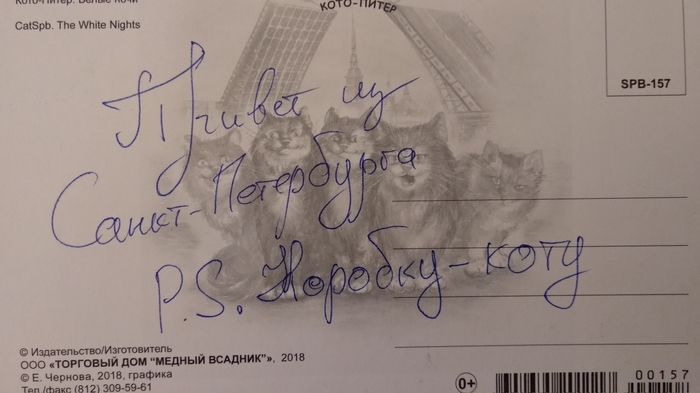 Кото-Питер. Белые ночи
CatSpb. The White Nights
КОТО-ПИТЕР
SPB-157
Привет из
Санкт-Петербурга
P.S. Коробку-коту
© Издательство/Изготовитель
ООО «ТОРГОВЫЙ ДОМ "МЕДНЫЙ ВСАДНИК"», 2018
© Е. Чернова, 2018, графика
Тел./факс (812) 309-59-61
0+
00157